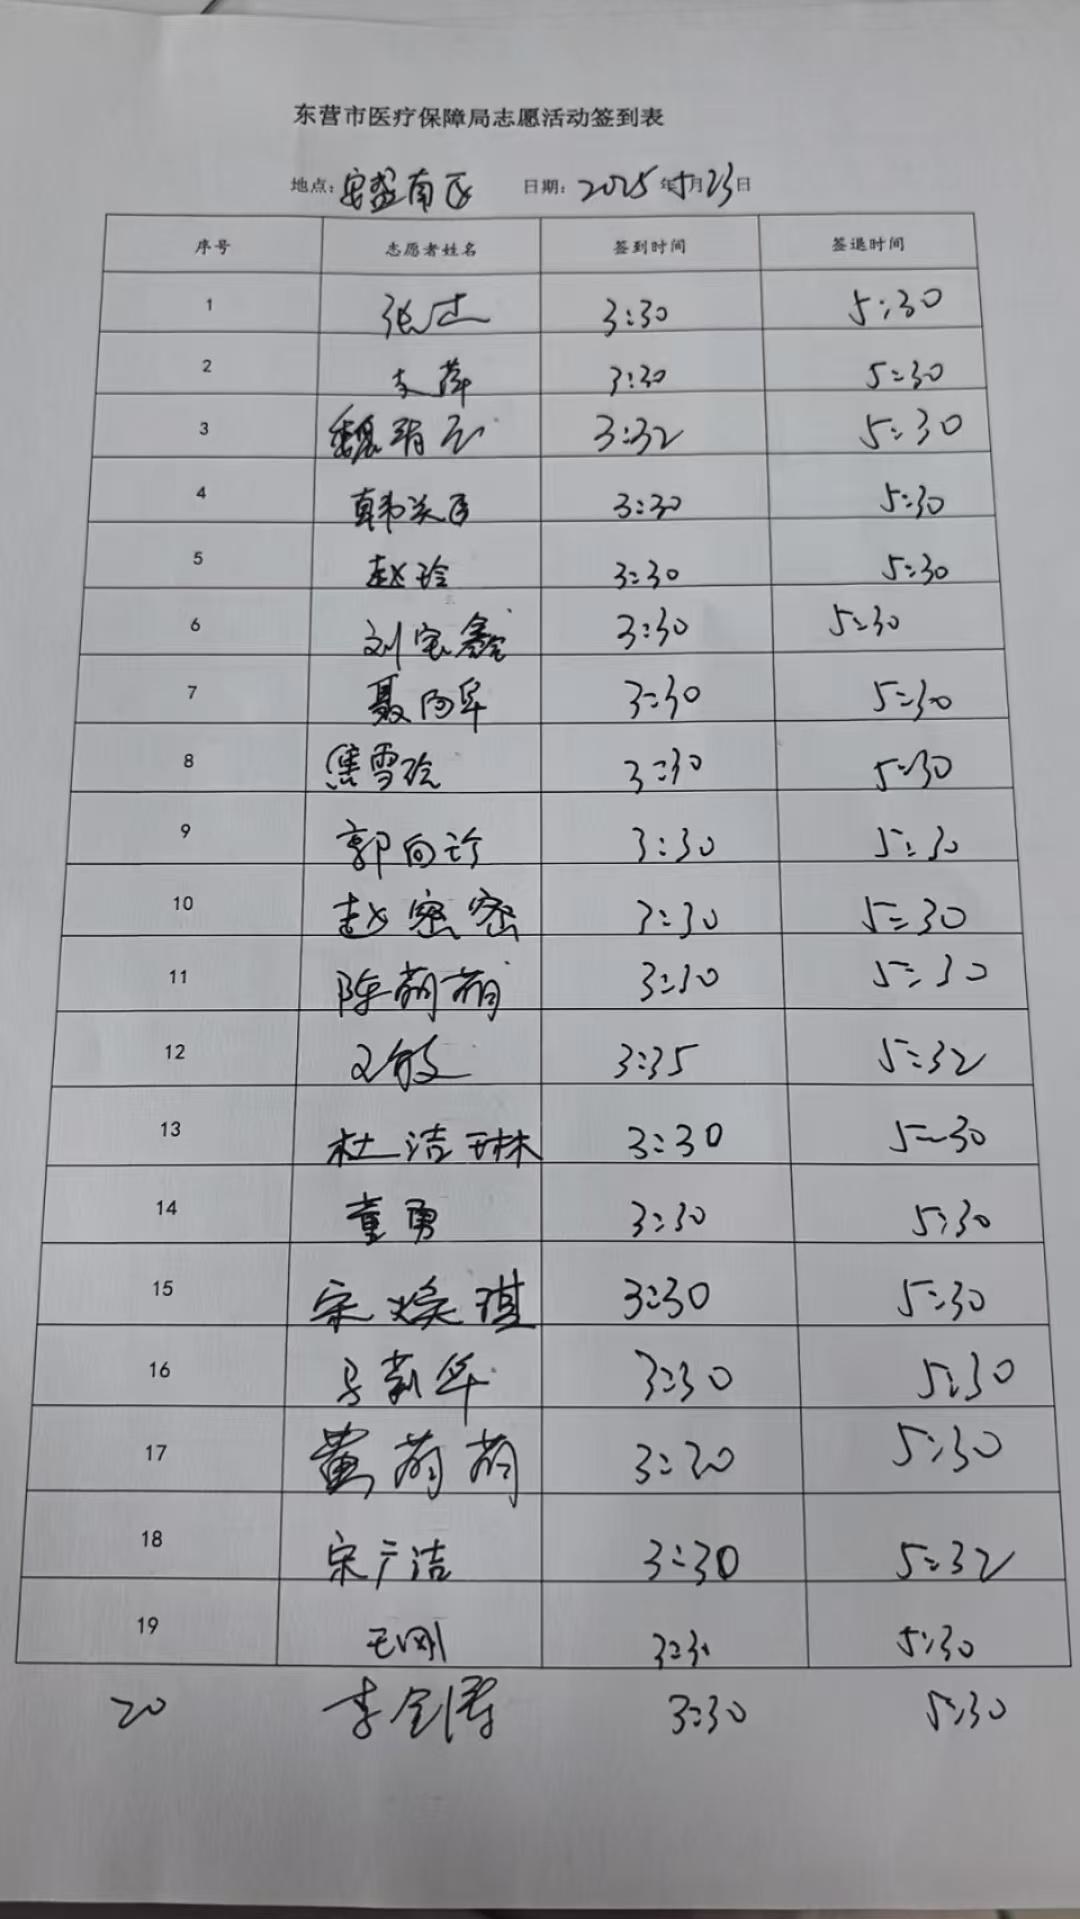 东营市医疗保障局志愿活动签到表
地点：安盛南区 日期：2025年5月23日
序号 志愿者姓名 签到时间 签退时间
1 张杰 3:30 5:30
2 萍 3:30 5:30
3 魏 3:32 5:30
4 韩 3:30 5:30
5 赵玲 3:30 5:30
6 刘宝鑫 3:30 5:30
7 聂 3:30 5:30
8 焦雪玲 3:30 5:30
9 郭向珍 3:30 5:30
10 赵密密 3:30 5:30
11 陈萌萌 3:30 5:30
12 敏 3:35 5:32
13 杜洁琳 3:30 5:30
14 董勇 3:30 5:30
15 宋焕琪 3:30 5:30
16 马莉华 3:30 5:30
17 黄萌萌 3:20 5:30
18 宋广洁 3:30 5:32
19 王刚 3:30 5:30
20 李金 3:30 5:30